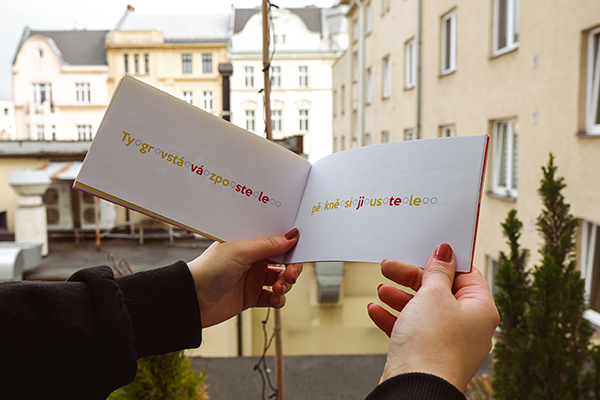 Ty○gr○vstá○vá○zpo○ste○le○○
pě○kně○si○ji○us○te○le○○